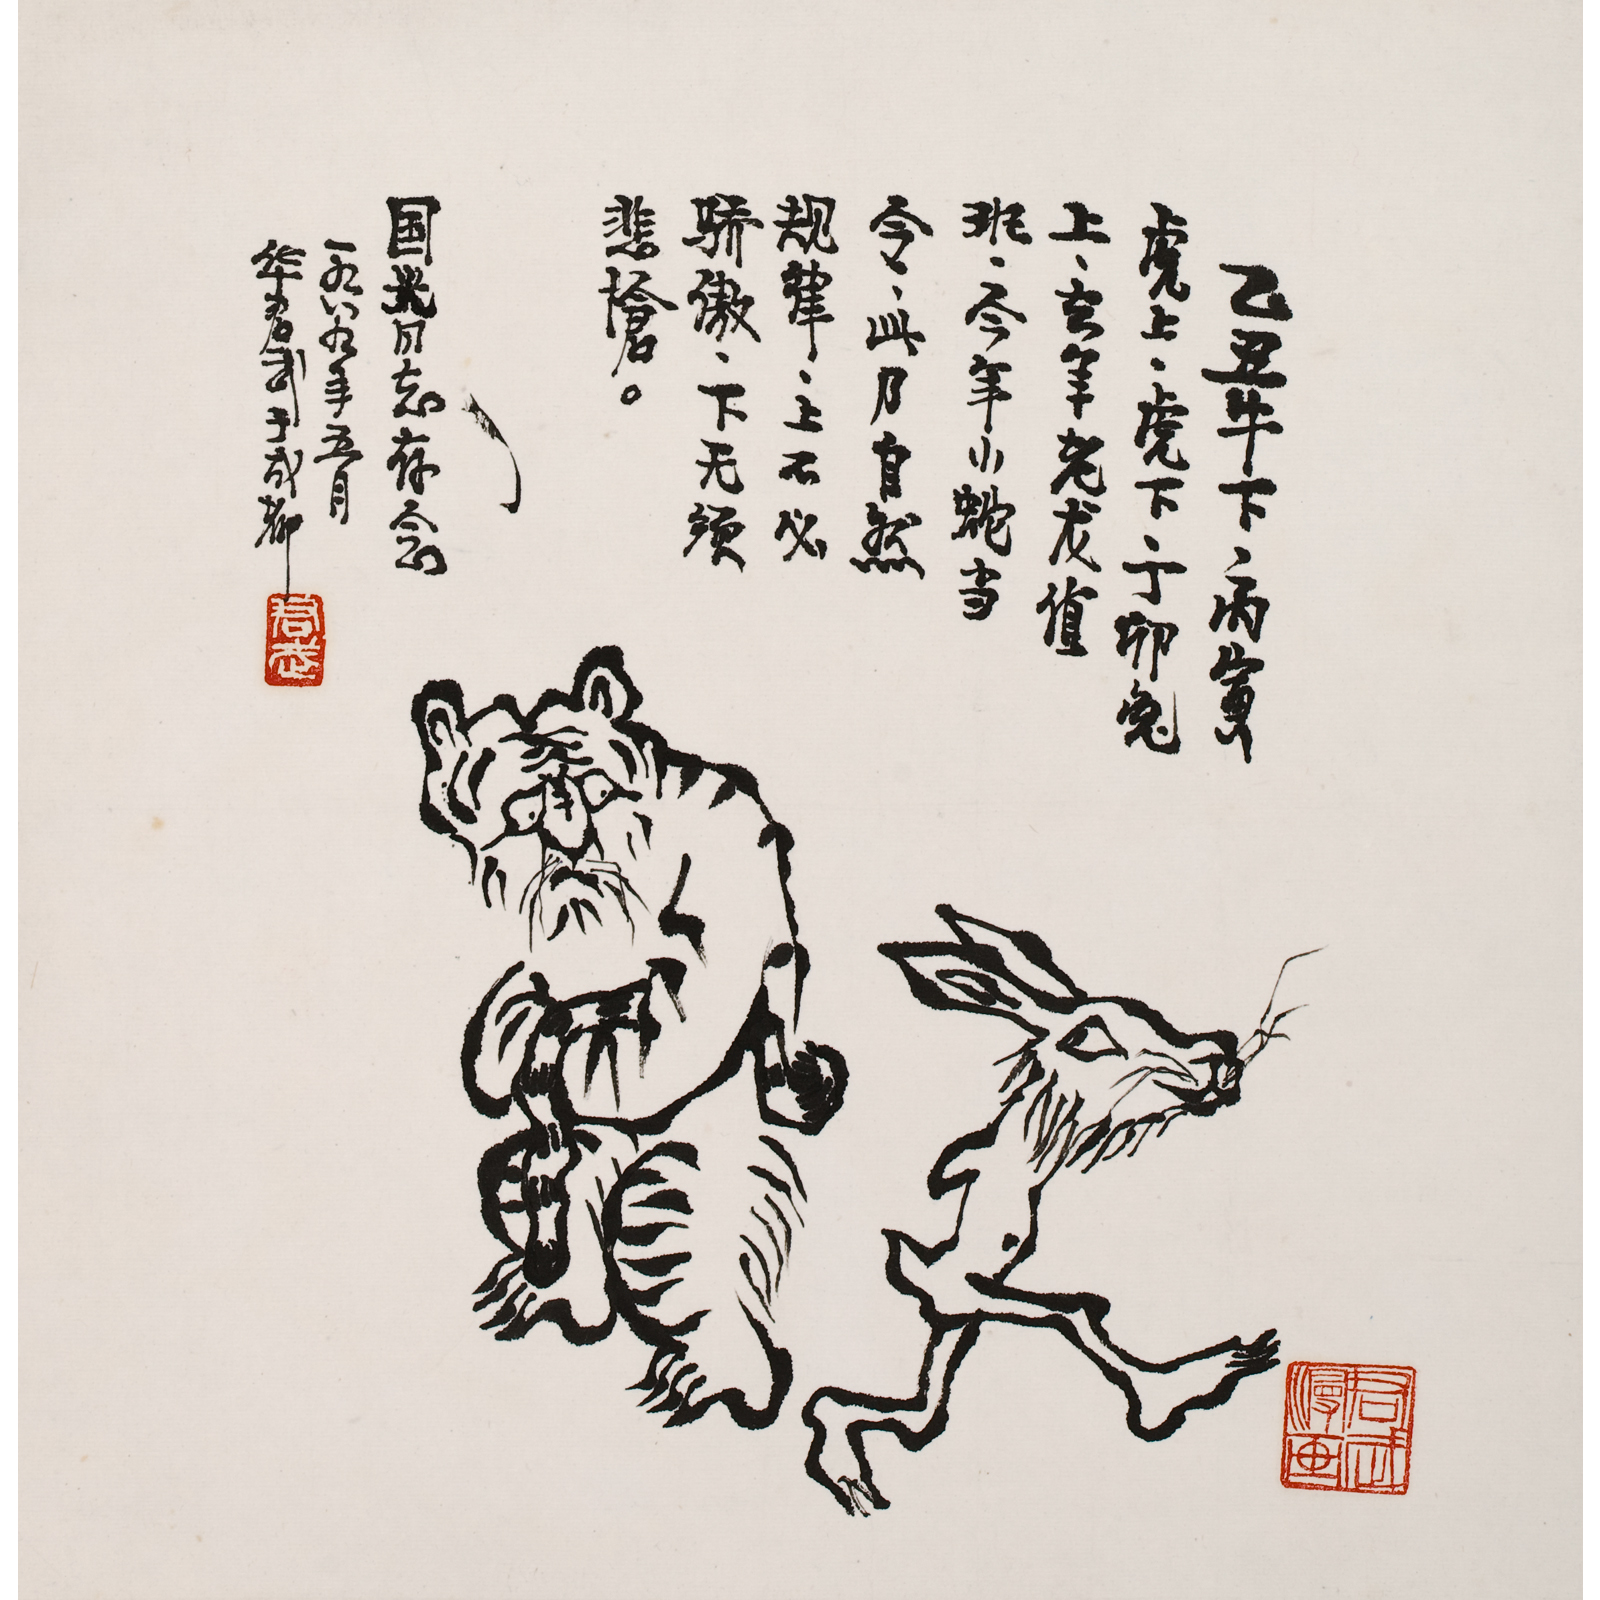 乙丑牛下、丙寅
虎上、虎下、丁卯兔
上、去年老龙值
班、今年小蛇当
令、此乃自然
规律、上不必
骄傲、下无须
悲怆。
国兆同志存念
一九八九年五月
华君武于成都
君武
君武漫画